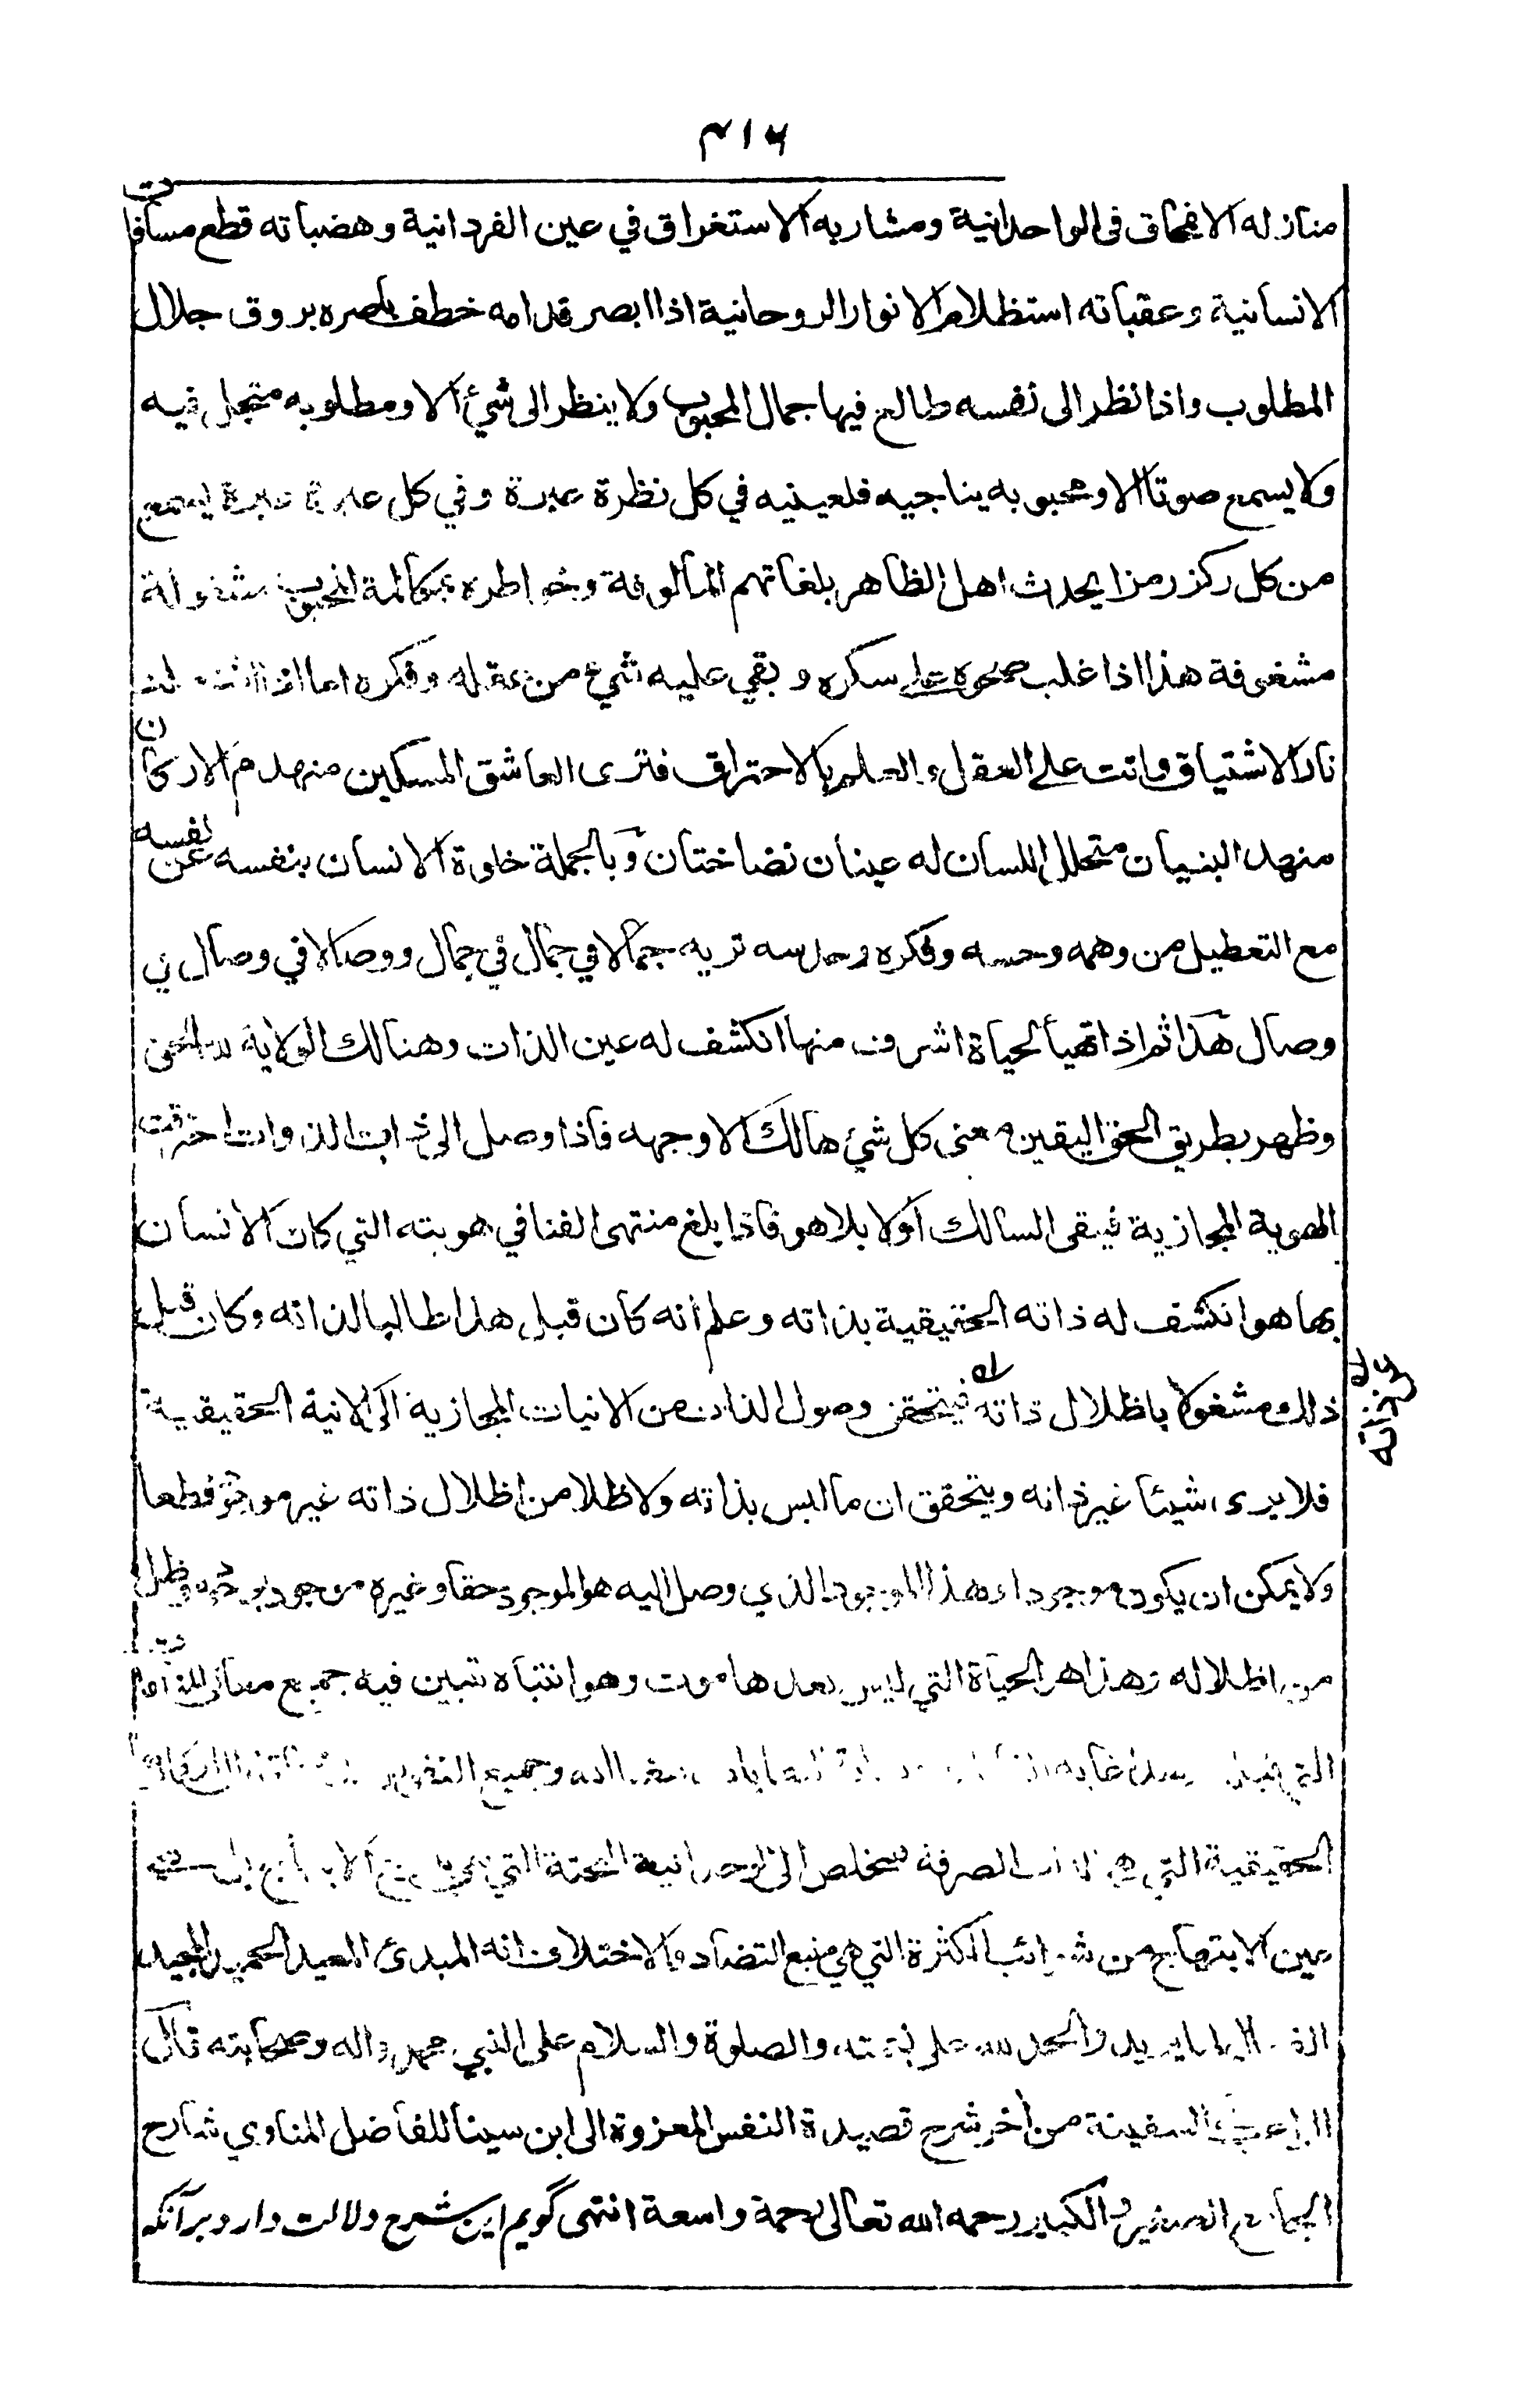 ٣١٦
منازله الانمحاق فى الواحدانية ومشاربه الاستغراق في عين الفردانية وهضباته قطع مسافات
الانسانية وعقباته استظلام الانوار الروحانية اذا ابصر قدامه خطف باصره بروق جلال
المطلوب واذا نظر الى نفسه طالع فيها جمال المحبوب ولا ينظر الى شيئ الا ومطلوبه متجل فيه
ولا يسمع صوتا الا ومحبوبه يناجيه فلعينيه في كل نظرة عبرة وفي كل عبرة عبرة يسمع
من كل ركز رمزا يحدث اهل الظاهر بلغاتهم المألوفة وخواطره بمكالمة المحبوب مشغولة
مشغوفة هذا اذا غلب صحوه على سكره و بقي عليه شيئ من عقله وفكره اما اذا
نار الاشتياق واتت على العقل والعلم بالاحتراق فترى العاشق المسكين منهدم الاركان
منهد البنيان متحلل اللسان له عينان نضاختان وبالجملة خلوة الانسان بنفسه عن نفسه
مع التعطيل من وهمه وحسه وفكره وحدسه تريه جمالا في جمال في جمال ووصالا في وصال في
وصال هذا ثم اذا تهيأ لحياة اشرف منها انكشف له عين الذات وهنالك الولاية لله الحق
وظهر بطريق الحق اليقين معنى كل شيئ هالك الا وجهه فاذا وصل الى ذات الذوات احترقت
الهوية المجازية فيبقى السالك اولا بلا هو فاذا بلغ منتهى الفنا في هويته التي كان الانسان
بها هو انكشف له ذاته الحقيقية بذاته وعلم انه كان قبل هذا طالبا لذاته وكان قبل
ذلك مشغولا باظلال ذاته فيتحقق له وصول الذات من الانيات المجازية الى الانية الحقيقية
فلا يرى شيئا غير ذاته ويتحقق ان ما ليس بذاته ولا ظلا من اظلال ذاته غير موجود قطعا
ولا يمكن ان يكون موجودا وهذا الموجود الذي وصل اليه هو الموجود حقا وغيره موجود وظل
من اظلاله وهذا هو الحياة التي ليس بعدها موت وهو انتباه تبين فيه جميع
الحقيقية التي هي الصرفة يتخلص الى الوحدانية التي
عين الابتهاج من شوائب الكثرة التي هي منبع التضاد والاختلاف انه المبدئ المعيد الحميد المجيد
لما يريد والحمد لله على والصلوة والسلام على النبي محمد واله وصحابته قال
السفينة من آخر شرح قصيدة النفس المعزوة الى ابن سينا للفاضل المناوي شارح
الجامع الصغير والكبير رحمه الله تعالى رحمة واسعة انتهى گويم اين شرح دلالت دارد برآنكه